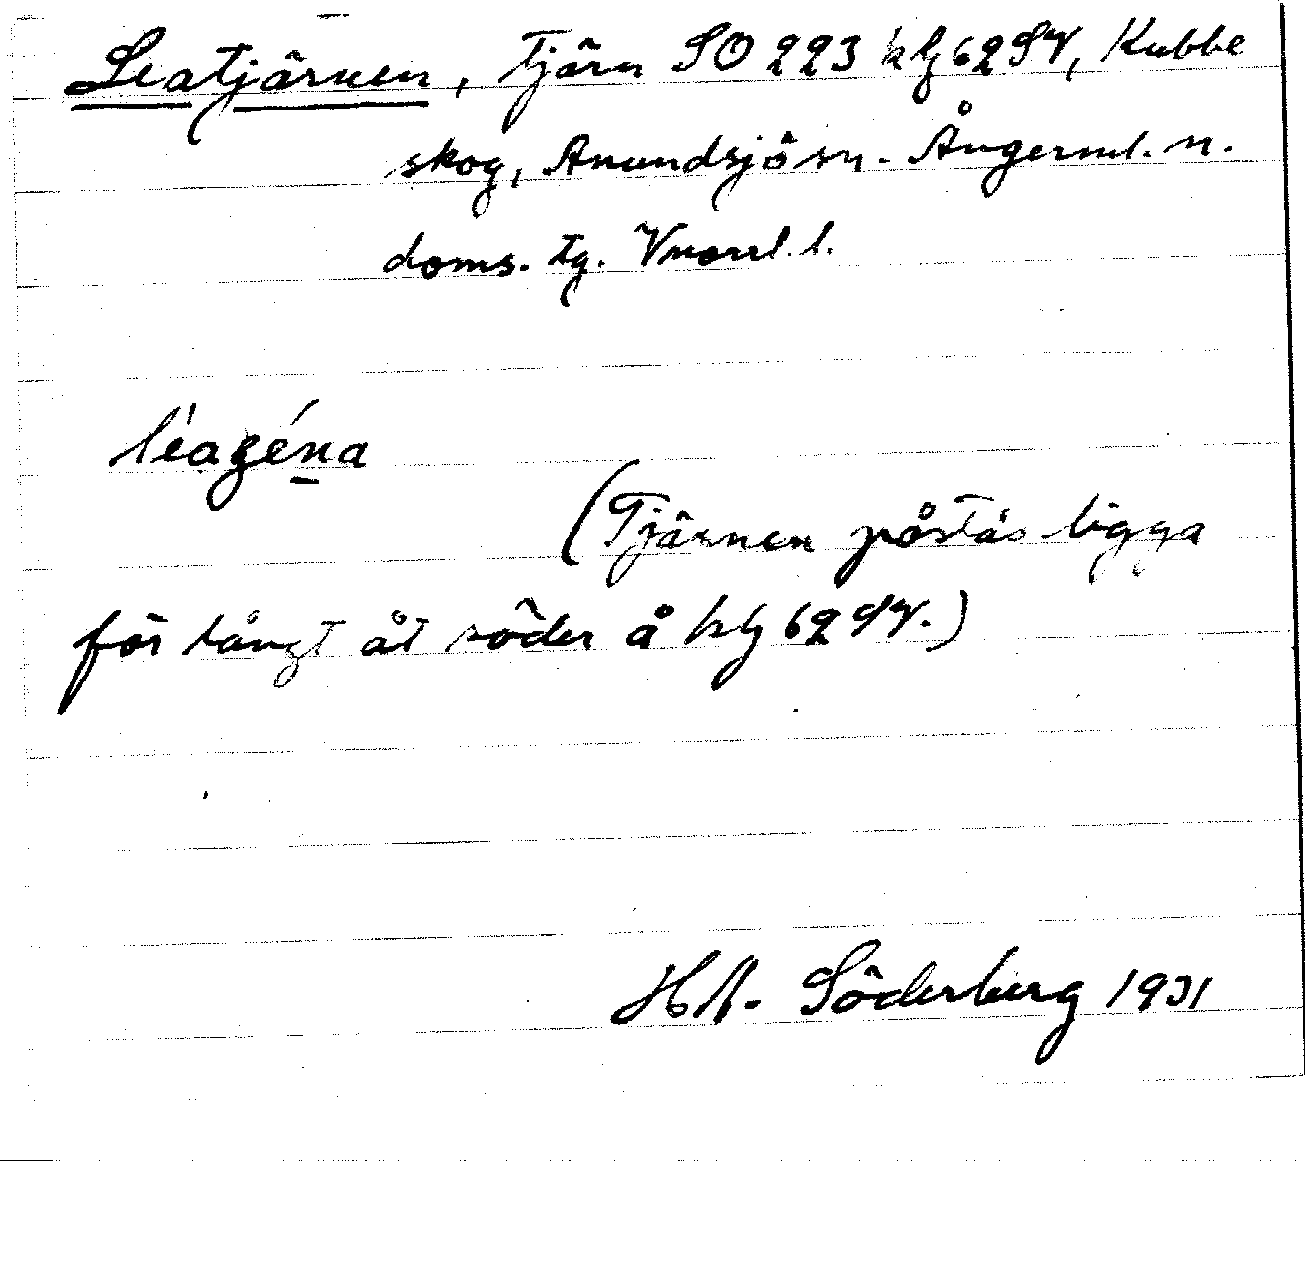 Leatjärnen, tjärn SO 223 kbl 62 SV, Kubbe
skog, Anundsjö sn. Ångerml. n.
doms. tg. Vnorrl. l.
léagéna
(Tjärnen påstås ligga
för långt åt söder å kbl 62 SV.)
H. A. Söderberg 1931